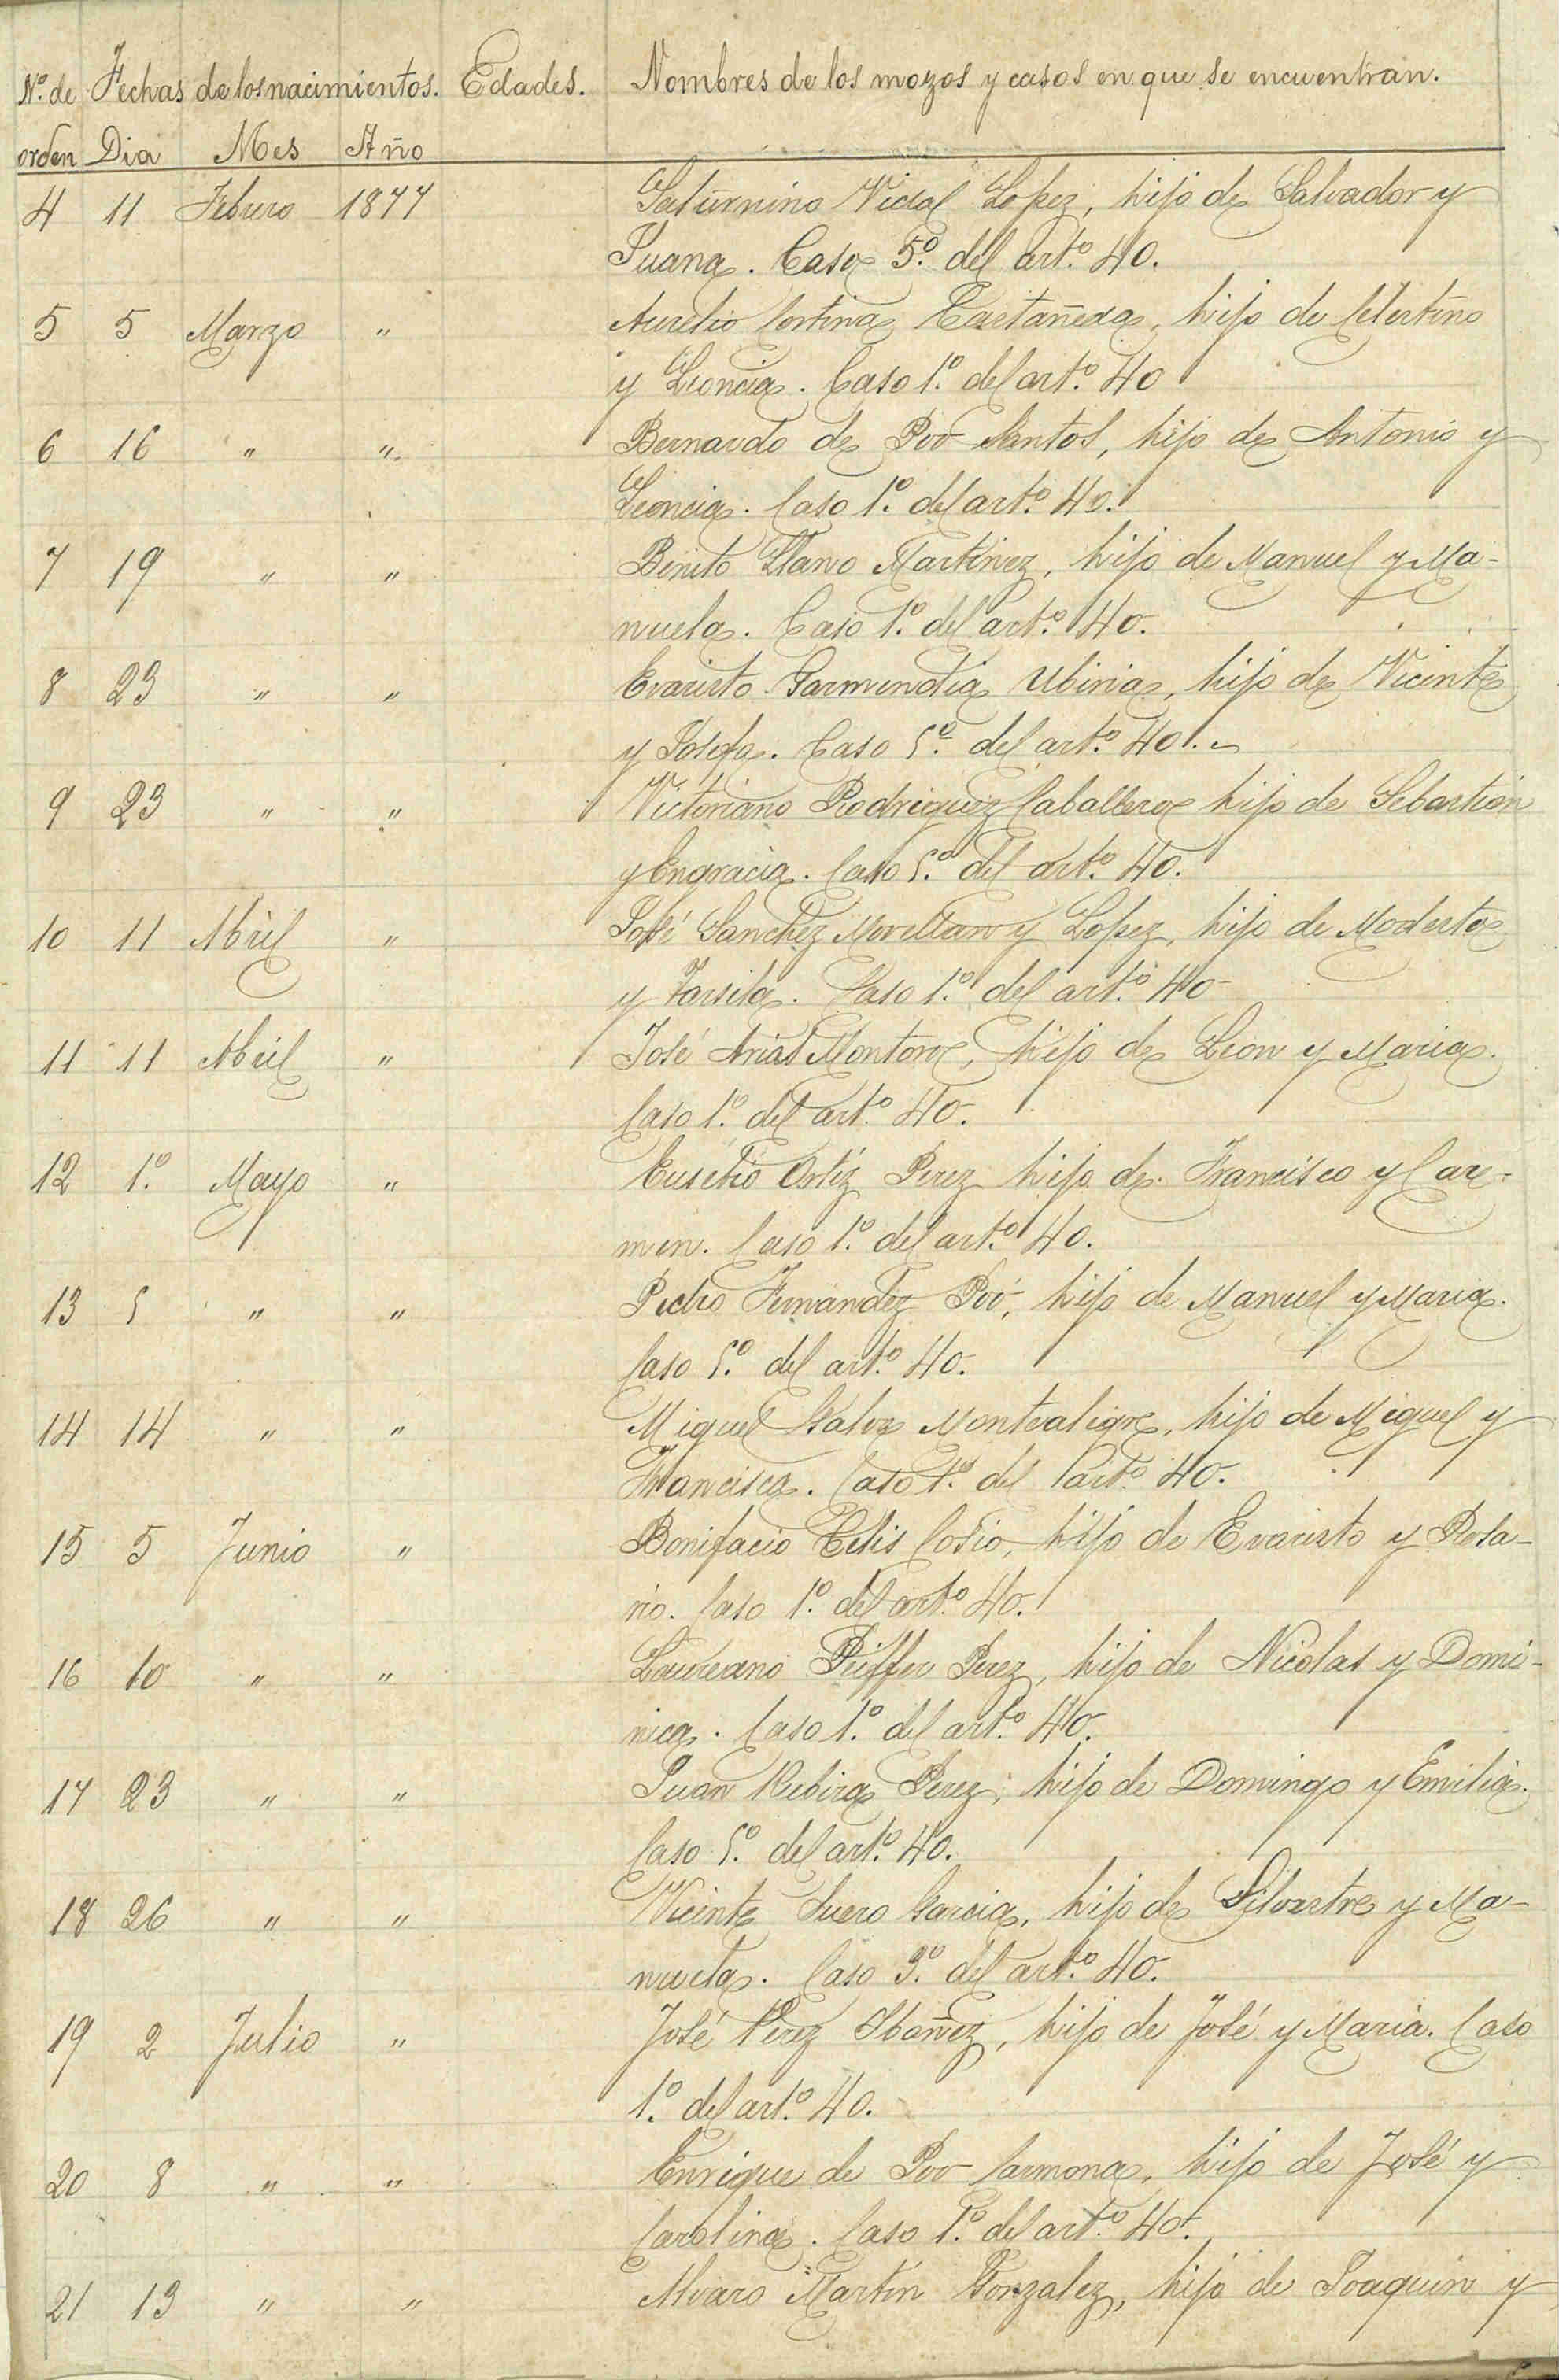 Nº. de Fechas de los nacimientos. Edades. Nombres de los mozos y casos en que se encuentran.
orden Dia Mes Año
4 11 Febrero 1877 Saturnino Vidal Lopez, hijo de Salvador y
Juana. Caso 5º. del artº. 40.
5 5 Marzo " Aurelio Cortina Castañeda, hijo de Celestino
y Leoncia. Caso 1º. del artº. 40
6 16 " " Bernardo de Poo Santos, hijo de Antonio y
Leoncia. Caso 1º. del artº. 40.
7 19 " " Benito Llano Martinez, hijo de Manuel y Ma-
nuela. Caso 1º. del artº. 40.
8 23 " " Evaristo Garmendia Ubiria, hijo de Vicente
y Josefa. Caso 5º. del artº. 40.
9 23 " " Victoriano Rodriguez Caballero hijo de Sebastian
y Engracia. Caso 5º. del artº. 40.
10 11 Abril " José Sanchez Movellan y Lopez, hijo de Modesto
y Tarsila. Caso 1º. del artº. 40
11 11 Abril " José Arias Montoro, hijo de Leon y Maria.
Caso 1º. del artº. 40.
12 1º. Mayo " Eusebio Ortiz Perez hijo de Francisco y Car-
men. Caso 1º. del artº. 40.
13 5 " " Pedro Fernandez Poó, hijo de Manuel y Maria.
Caso 5º. del artº. 40.
14 14 " " Miguel Montealegre, hijo de Miguel y
Francisca. Caso 1º. del artº. 40.
15 5 Junio " Bonifacio Celis Cosio, hijo de Evaristo y Rosa-
rio. Caso 1º. del artº. 40.
16 10 " " Laureano Peiffer Perez, hijo de Nicolas y Domi-
nica. Caso 1º. del artº. 40.
17 23 " " Juan Rubira Perez, hijo de Domingo y Emilia.
Caso 5º. del artº. 40.
18 26 " " Vicente Suero Garcia, hijo de Silvestre y Ma-
nuela. Caso 3º. del artº. 40.
19 2 Julio " José Perez Ibañez, hijo de José y Maria. Caso
1º. del artº. 40.
20 8 " " Enrique de Poo Carmona, hijo de José y
Carolina. Caso 1º. del artº. 40.
21 13 " " Alvaro Martin Gonzalez, hijo de Joaquin y